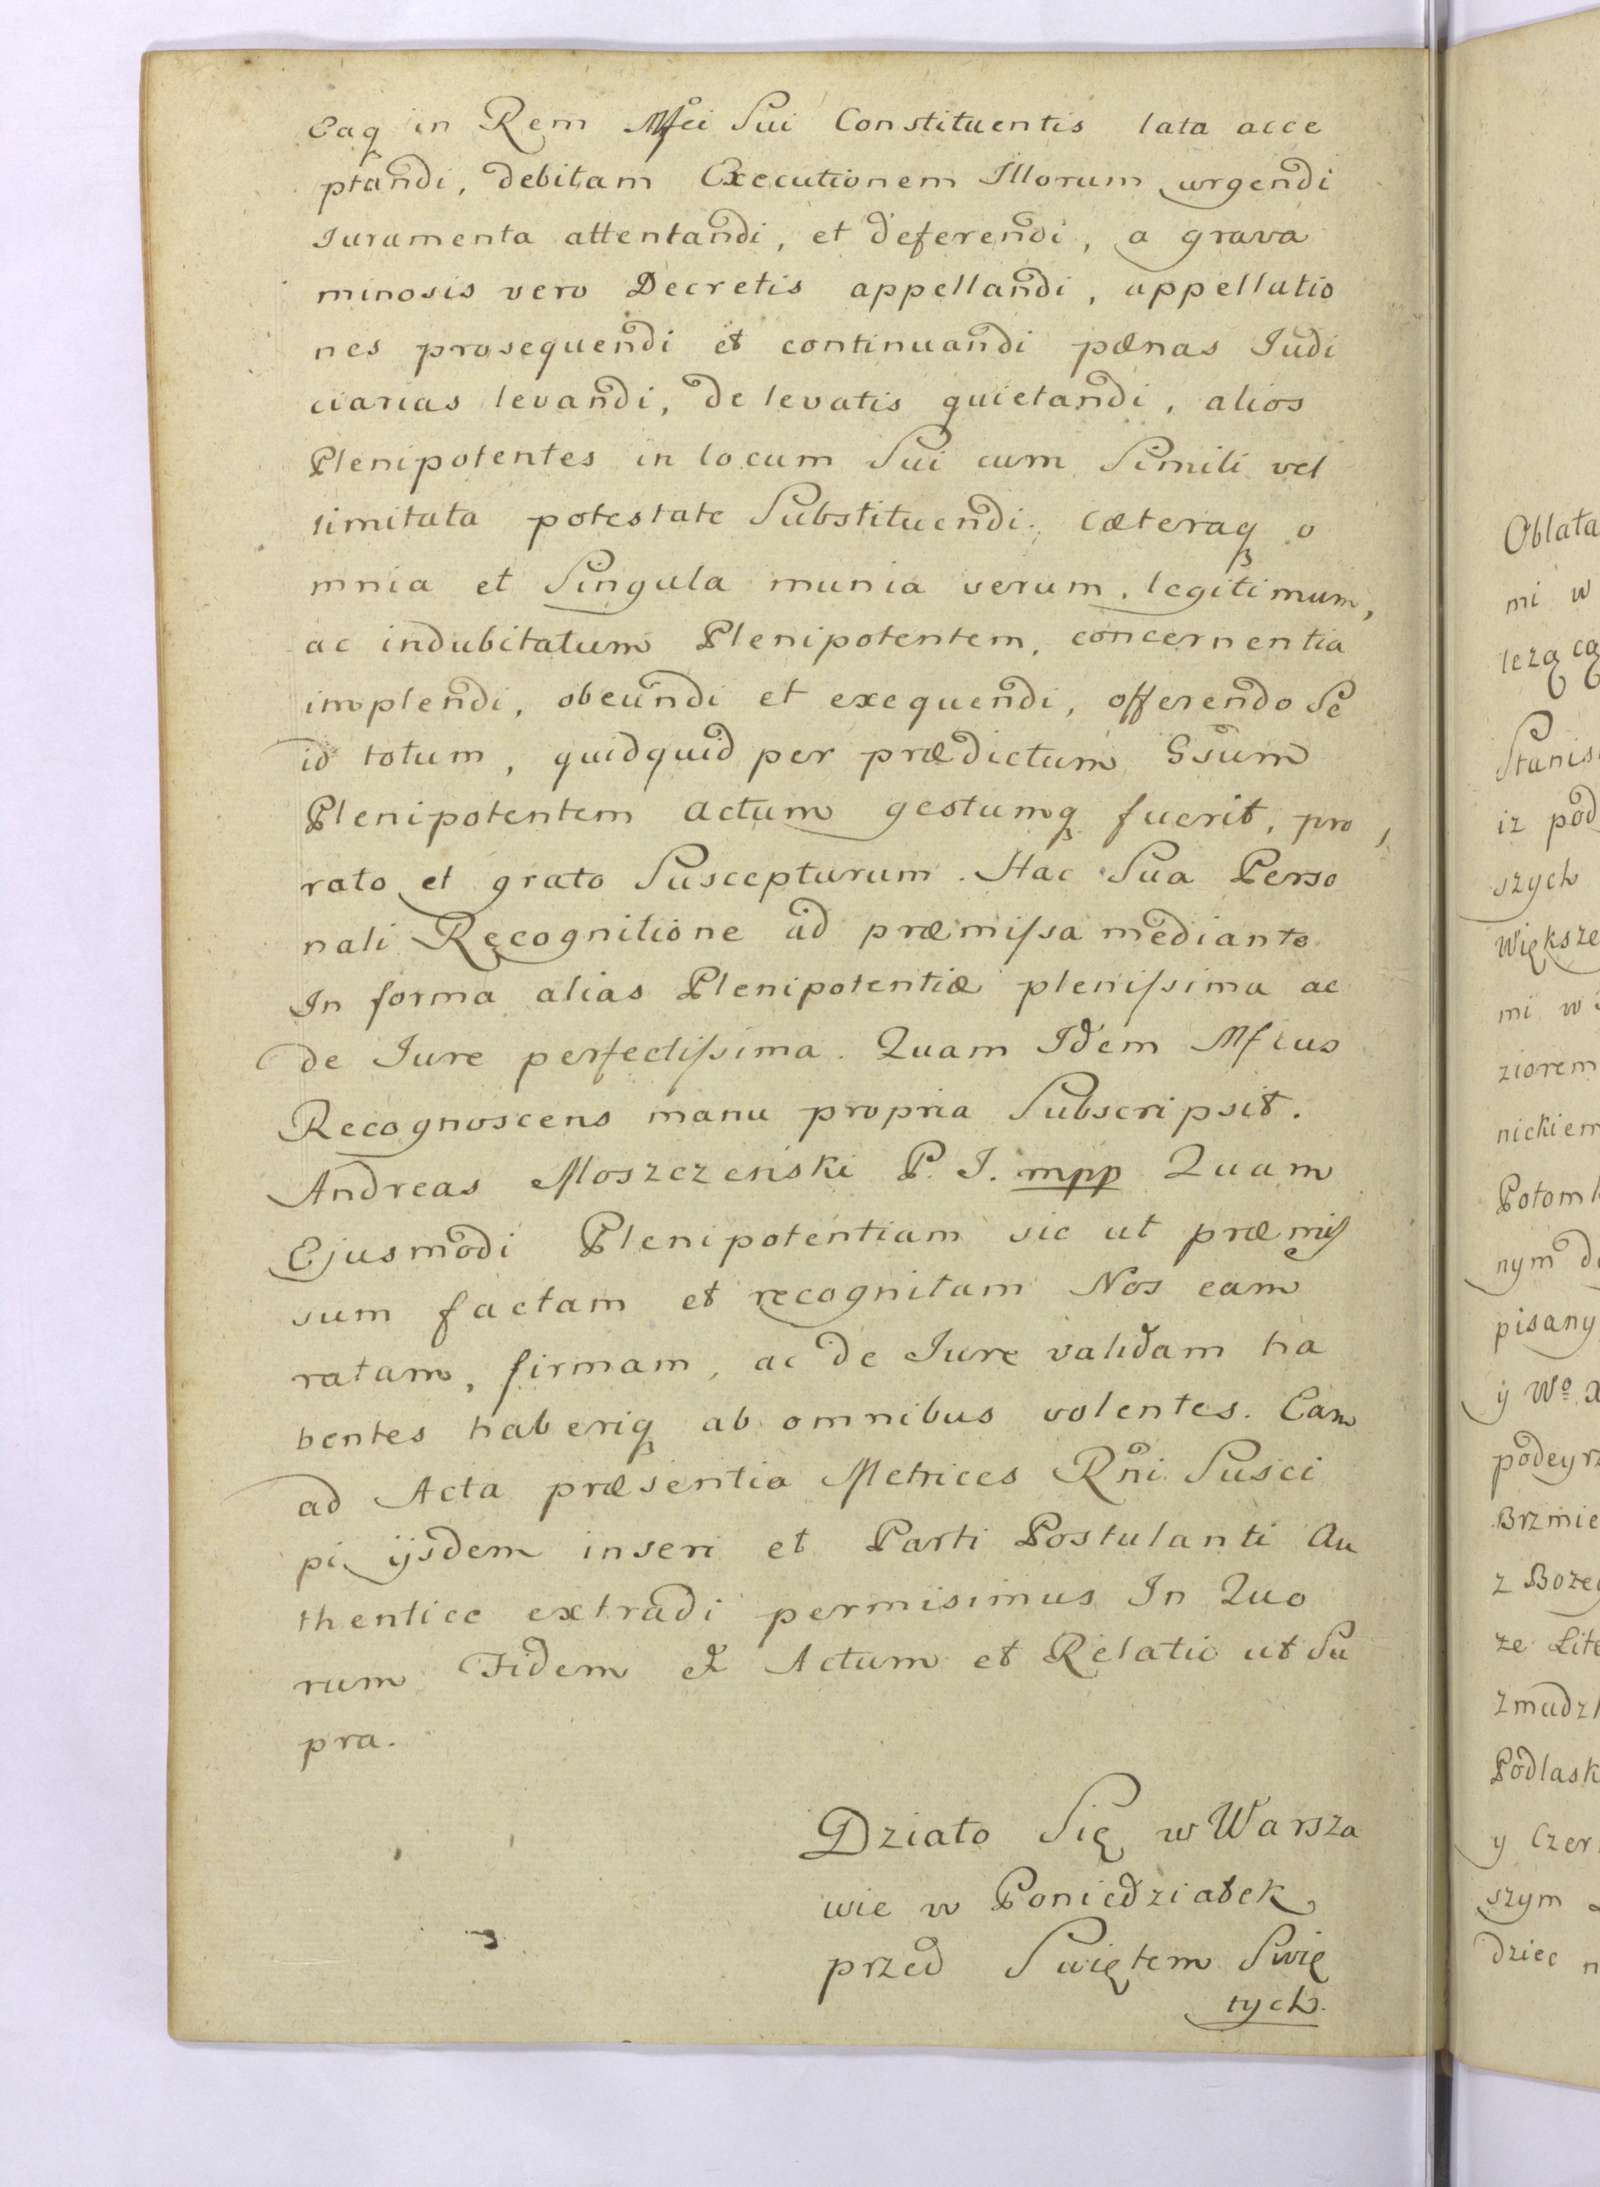 Eaq in Rem Mfci Sui Constituentis lata acce
ptandi, debitam Executionem Illorum urgendi
Iuramenta attentandi, et deferendi, a grava
minosis vero Decretis appellandi, appellatio
nes prosequendi et continuandi pænas Iudi
ciarias levandi, de levatis quietandi, alios
Plenipotentes in locum Sui cum Simili vel
limitata potestate Substituendi, cæteraq o
mnia et Singula munia verum, legitimum,
ac indubitatum Plenipotentem, concernentia
implendi, obeundi et exequendi, offerendo Se
id totum, quidquid per prædictum Gsum
Plenipotentem actum gestumq fuerit, pro
rato et grato Suscepturum. Hac Sua Perso
nali Recognitione ad præmissa mediante
In forma alias Plenipotentiæ plenissima ac
de Iure perfectissima. Quam Idem Mfcus
Recognoscens manu propria Subscripsit.
Andreas Moszczeński P. J. mpp Quam
Ejusmodi Plenipotentiam sic ut præmis
sum factam et recognitam Nos eam
ratam, firmam, ac de Iure validam ha
bentes haberiq ab omnibus volentes. Eam
ad Acta præsentia Metrices Rni Susci
pi, ijsdem inseri et Parti Postulanti Au
thentice extradi permisimus In Quo
rum Fidem &. Actum et Relatio ut Su
pra.
Działo Się w Warsza
wie w Poniedziałek
przed Swiętem Swię
tych.
Oblata
mi w
leżącą
Stanis
iz pod
szych
Większe
mi w
ziorem
nickiem
Potom
nym do
pisany
y Wo X
podeyrz
Brzmie
z Boże
że Lite
Zmudz
Podlask
y Czer
szym
dziec n